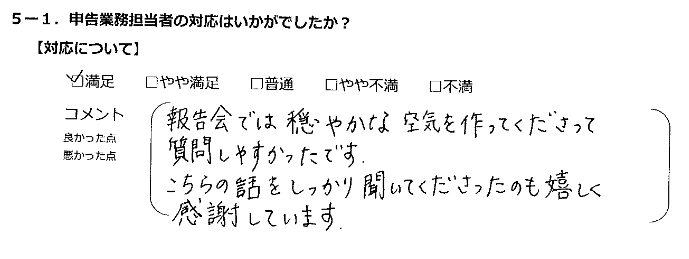 ５－１．申告業務担当者の対応はいかがでしたか？
【対応について】
☑満足 □やや満足 □普通 □やや不満 □不満
コメント
良かった点
悪かった点
報告会では穏やかな空気を作ってくださって
質問しやすかったです.
こちらの話をしっかり聞いてくださったのも嬉しく
感謝しています.